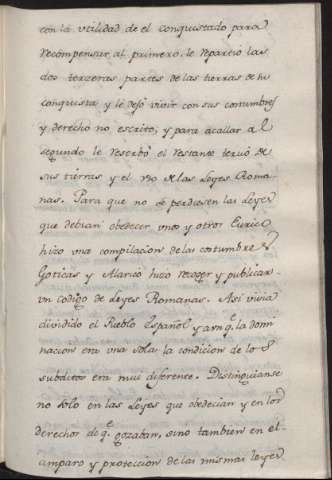 con la utilidad de el conquistado para
recompensar al primero, le repartió las
dos terzeras partes de las tierras de la
conquista y le dejó vivir con sus costumbres
y derecho no escrito, y para acallar al
segundo le reserbó el restante tercio de
sus tierras y el uso de las Leyes Roma-
nas. Para que no se perdiesen las Leyes
que debian obedecer unos y otros Eurico
hizo una compilacion de las costumbres
Goticas y Alarico hizo recoger y publicar
un codigo de Leyes Romanas. Asi vivia
dividido el Pueblo Español y aunq.e la domi
nacion era una sola la condicion de los
subditos era mui diferente. Distinguianse
no solo en las Leyes que obedecian y en los
derechos de q.e gozaban, sino tambien en el
amparo y proteccion de las mismas leyes